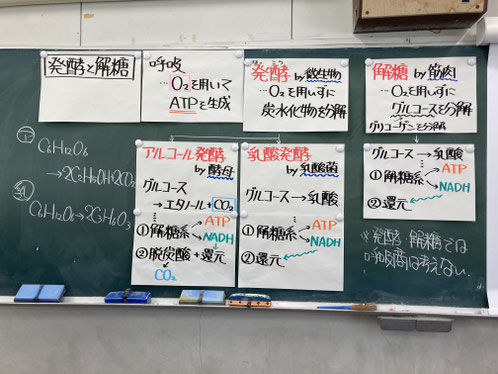 発酵と解糖
呼吸
…O₂を用いて
ATPを生成
はっこう
発酵 by微生物
…O₂を用いずに
炭水化物を分解
解糖 by筋肉
…O₂を用いずに
グルコースを分解
グリコーゲンを分解
C₆H₁₂O₆
→2C₂H₅OH+2CO₂
C₆H₁₂O₆→2C₃H₆O₃
アルコール発酵
by酵母
グルコース
→エタノール+CO₂
①解糖系
ATP
NADH
②脱炭酸+還元
CO₂
乳酸発酵
by乳酸菌
グルコース→乳酸
①解糖系
ATP
NADH
②還元
グルコース→乳酸
①解糖系
ATP
NADH
②還元
※発酵 解糖では
呼吸商は考えない。